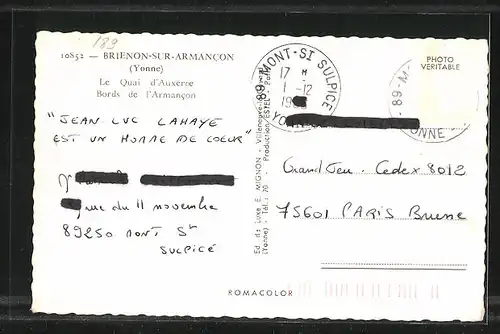 189
10852 - BRIENON-SUR-ARMANÇON
(Yonne)
Le Quai d'Auxerre
Bords de l'Armançon
"JEAN LUC LAHAYE
EST UN HOMME DE COEUR"
rue du 11 novembre
89250 MONT St
SULPICE
Ed. de Luxe E. MIGNON - Villeneuve
(Yonne) Tél.: 20 - Production ESTEL - Paris
89-MONT-ST SULPICE
17 H
1-12
19
YONNE
89-M
YONNE
PHOTO
VERITABLE
Grand Jeu. Cedex 8012
75601 PARIS Brune
ROMACOLOR